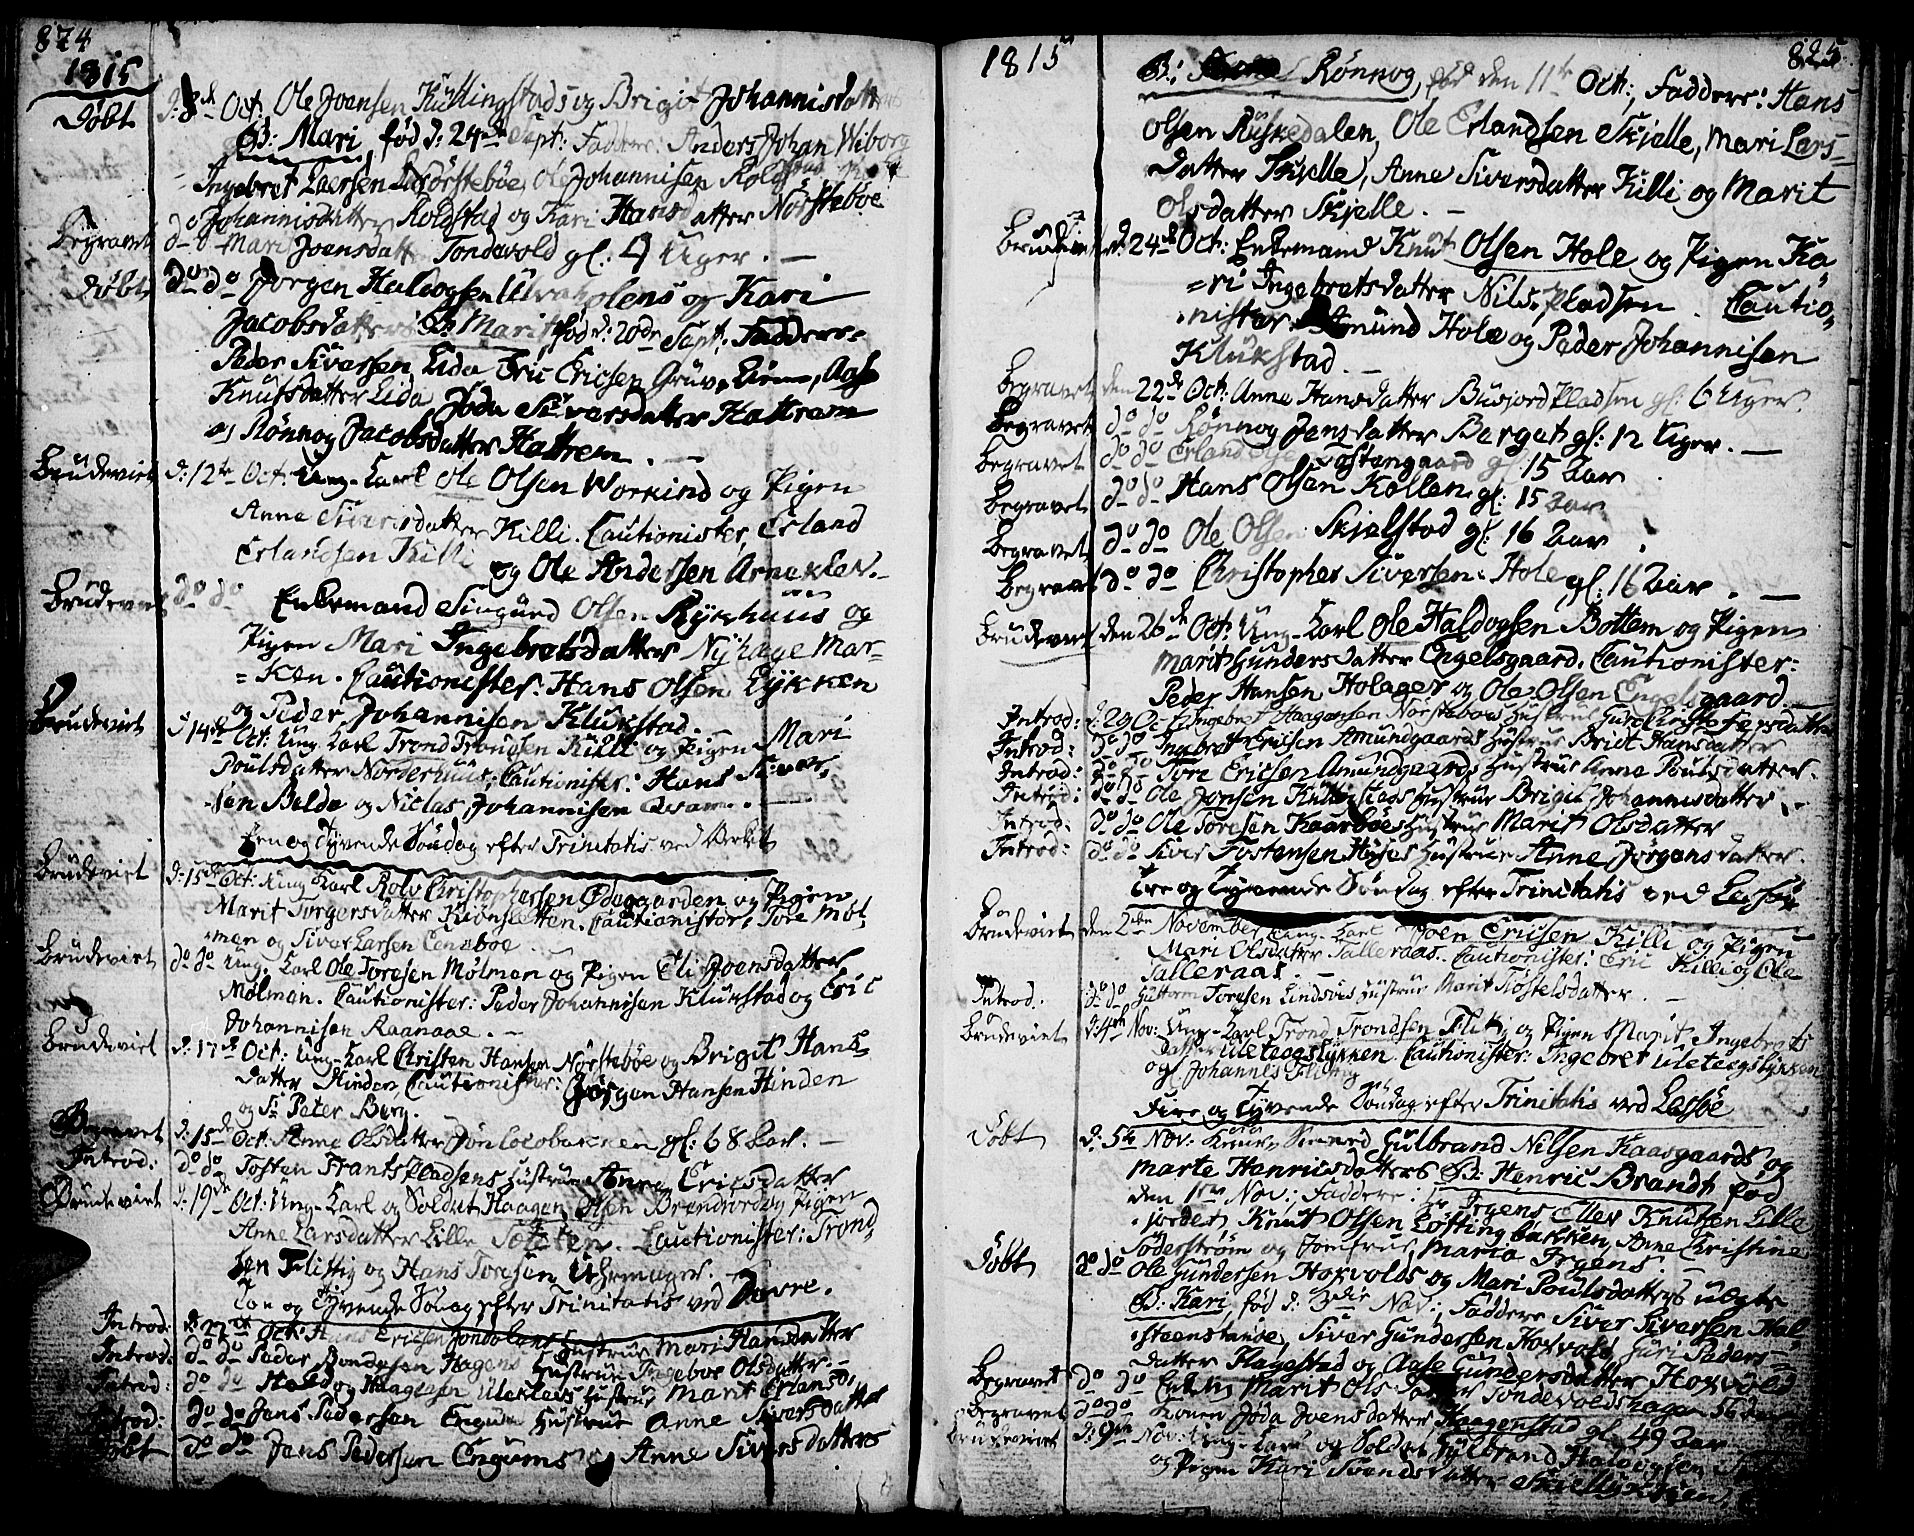 874
1815
Döbt d: 8de Oct: Ole Joensen Kullingstads og Brigit Johannisdatters
B: Mari, fød d: 24de Sept: Faddere: Anders Johan Wiborg
Ingebret Larsen Nörsteböe, Ole Johannisen Roldstad,
Johannisdatter Roldstad og Kari Hansdatter Nörsteböe
Begravet do do Marit Joensdatter Tondevold gl: 4 Uger. —
Döbt do do Jörgen Haldogsen og Kari
Jacobsdatters B: Marit fød d: 20de Sept: Faddere:
Peder Siversen Lida Eric Ericsen
Knutsdatter Lida, Joda Siversdatter Hattrem
og Rönnog Jacobsdatter Hattrem. —
Brudeviet d: 12te Oct: Ung-Karl Ole Olsen Workind og Pigen
Anne Siversdatter Killi. Cautionister, Erland
Erlandsen Killi
og Ole Andersen Arneklev. —
Brudeviet do do Enkemand Siugurd Olsen Rykhuus og
Pigen Mari Ingebretsdatter Nyhage Mar-
=ken. Cautionister: Hans Olsen Lykken
og Peder Johannisen Klukstad.
Brudeviet d 14de Oct: Ung-Karl Trond Trondsen Killi og Pigen Mari
Poulsdatter Norderhuus, Cautionister: Hans Siver-
sen Belde og Niclas Johannisen Qvam. —
Een og Tyvende Söndag efter Trinitatis ved Verket
Brudeviet d: 15de Oct: Ung Karl Rolv Christophersen Ödegaarden og Pigen
Marit Torgersdatter Kiönsletten. Cautionister: Tore Möl-
men og Siver Larsen Eeneboe.
Brudeviet do do Ung-Karl Ole Toresen Mölmen og Pigen Eli Joensdatter
Mölmen. Cautionister: Peder Johannisen Klukstad og Eric
Johannisen Raanaae. —
Brudeviet d: 17de Oct: Ung-Karl Christen Hansen Nörsteböe og Brigit Hans-
datter Hinden, Cautionister: Jörgen Hansen Hinden
og Sr Peter Berg.
Begravet d: 15de Oct: Anne Olsdatter gl: 68 Aar. —
Introd: do do Tosten Frants Pladsens Hustrue Anne Ericsdatter
Brudeviet d: 19de Oct: Ung-Karl og Soldat Haagen Olsen Brendjord og Pigen
Anne Larsdatter Lille Cautionister: Trond
sen Flittig og Hans Toresen Uhrmager.
Toe og Tyvende Söndag efter Trinitatis ved Dovre.
Introd: d 22de Oct: Ericsen Jondalens Hustrue Mari Hansdatter
Introd: do do Peder Bondesen Hagens Hustrue Ingebor Olsdatter. —
Introd: do do Haldog Haagensen Hustrue Marit Erlandsdr
Introd: do do Jens Pedersen Engums Hustrue Anne Siversdatter
Döbt do do Jens Pedersen Engums og Anne Siversdatters
1815
825
B: Rönnog, fød den 11te Oct:, Faddere: Hans
Olsen Ruskedalen, Ole Erlandsen Skjelle, Mari Lars-
datter Skjelle, Anne Siversdatter Killi og Marit
Olsdatter Skjelle. —
Brudeviet d: 24de Oct: Enkemand Knut Olsen Hole og Pigen Ka-
=ri Ingebretsdatter Nils-Pladsen. Cautio-
nister. Amund Hole og Peder Johannisen
Klukstad.
Begravet den 22de Oct: Anne Hansdatter Busjord Pladsen gl: 6 Uger.
Begravet do do Rönnog Jensdatter Berget gl: 12 Uger. —
Begravet do do Erland Olsen Tostengaard gl: 15 Aar
Begravet do do Hans Olsen Kollen gl: 15 Aar
Begravet do do Ole Olsen Skjelstad gl: 16 Aar
Begravet do do Christopher Siversen Hole, gl: 16 Aar. —
Brudeviet den 26de Oct: Ung-Karl Ole Haldogsen Bottem og Pigen
Marit Gundersdatter Engelsgaard. Cautionister:
Peder Hansen Holager og Ole Olsen Engelsgaard
Introd: d: 29 Oct: Ingebret Haagensen Nörsteboes Hustrue Guri Christophersdatter
Introd: do do Ingebret Ericsen Amundgaards Hustrue Bridt Hansdatter
Introd: do do Tore Ericsen Amundgaards Hustrue Anne Poulsdatter.
Introd: do do Ole Jonsen Kullingstads Hustrue Brigit Johannisdatter.
Introd: do do Ole Toresen Kaarböes Hustrue Marit Olsdatter
Introd: do do Siver Tostensen Huses Hustrue Anne Jörgensdatter.
Tre og Tyvende Söndag efter Trinitatis ved Lessöe
Brudeviet den 2den November Ung-Karl Joen Ericsen Killi og Pigen
Mari Olsdatter Talleraas. Cautionister: Eric Killi og Ole
Talleraas. —
Introd: do do Guttorm Toresen Lindsöes Hustrue Marit Töstelsdatter. —
Brudeviet d: 4de Nov: Ung-Karl Trond Trondsen Flittig og Pigen Marit Ingebrets
datter Uleteegslykken. Cautionister: Ingebret Uleteegslykken
og Johannes Flittig
Fire og Tyvende Söndag efter Trinitatis ved Lessöe
Döbt d: 5te Nov: Gulbrand Nilsen Kaasgaards og
Marte Henricsdatters B: Henric Brandt fød
den 1ste Nov:; Faddere: Irgens Eller Knutsen Lille
jordet Knut Olsen Löftingbakken, Anne Christine
Söderström og Jomfrue Maria Irgens. —
Döbt do do Ole Gundersen Hoxvolds og Mari Poulsdatters uægte
B: Kari fød d: 3die Nov:; Faddere Siver Siversen Hal-
steenstuöe, Siver Gundersen Hoxvold Guri Peders-
datter Hagestad og Aase Gundersdatter Hoxvold
Begravet do do Enken Marit Olsdatter Tondevoldshagen 56
Begravet do do Konen Joda Joensdatter Haagenstad gl: 49 Aar
Brudeviet d: 9de Nov: Ung-Karl og Soldat Gulbrand Halvogsen
og Pigen Kari Svendsdatter Skjellykkjen,